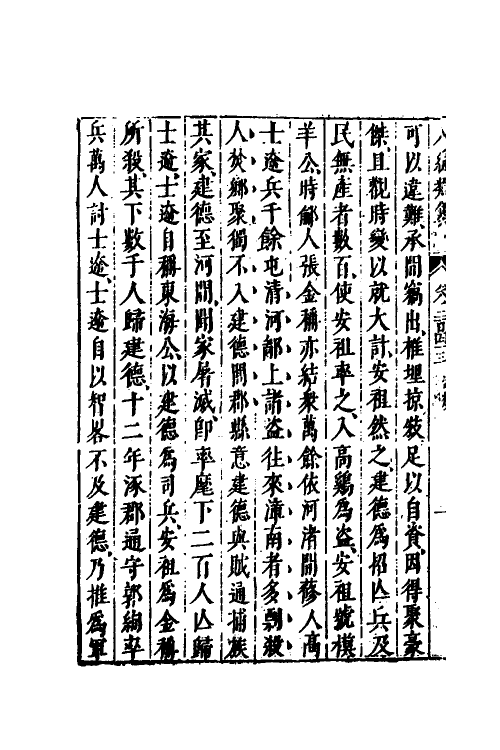 可以違難承間竊出椎埋掠敚足以自資因得聚豪
傑且觀時變以就大計安祖然之建德爲招亡兵及
民無產者數百使安祖率之入高鷄爲盗安祖號摸
羊公時鄃人張金稱亦結衆萬餘依河渚間蓚人高
士達兵千餘屯清河鄙上諸盗往來漳南者多剽殺
人焚鄉聚獨不入建德閭郡縣意建德與賊通捕族
其家建德至河間聞家屠滅卽率麾下二百人亡歸
士達士達自稱東海公以建德爲司兵安祖爲金稱
所殺其下數千人歸建德十二年涿郡通守郭絢率
兵萬人討士達士達自以智畧不及建德乃推爲軍